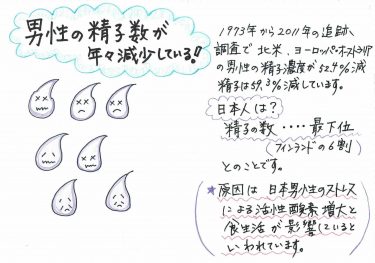 男性の精子数が
年々減少している!
1973年から2011年の追跡
調査で北米、ヨーロッパ・オーストラリア
の男性の精子濃度が52.4%減
精子は59.3%減しています。
日本人は?
精子の数 ・・・・ 最下位
(フィンランドの6割)
とのことです。
★原因は 日本男性のストレス
による活性酸素増大と
食生活が影響していると
いわれています。